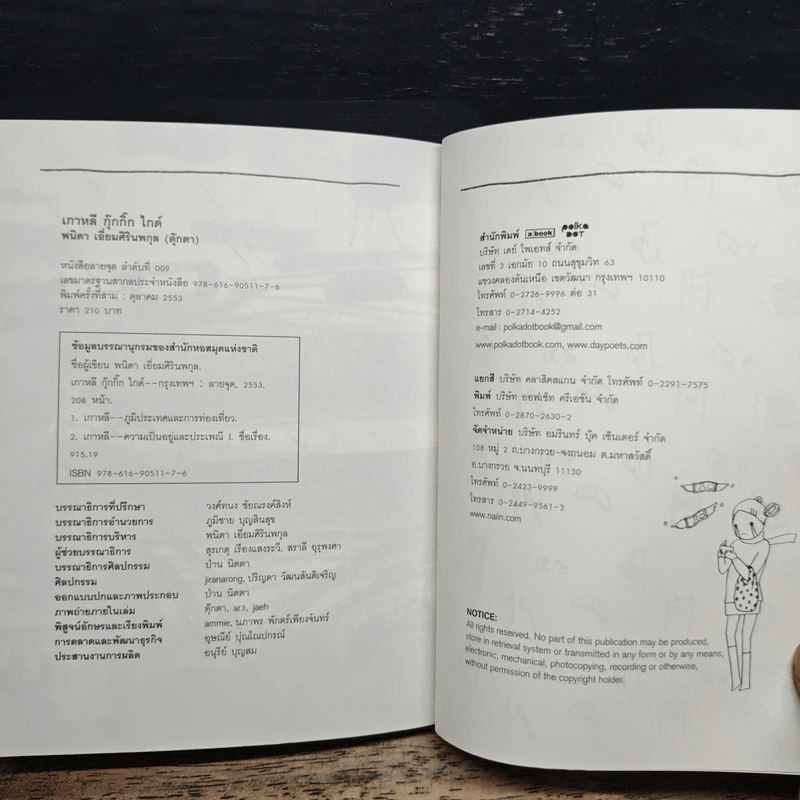 เกาหลี กุ๊กกิ๊ก ไกด์
พนิดา เอี่ยมศิรินพกุล (ตุ๊กตา)
หนังสือลายจุด ลำดับที่ 009
เลขมาตรฐานสากลประจำหนังสือ 978-616-90511-7-6
พิมพ์ครั้งที่สาม : ตุลาคม 2553
ราคา 210 บาท
ข้อมูลบรรณานุกรมของสำนักหอสมุดแห่งชาติ
ชื่อผู้เขียน พนิดา เอี่ยมศิรินพกุล.
เกาหลี กุ๊กกิ๊ก ไกด์--กรุงเทพฯ : ลายจุด, 2553.
208 หน้า.
1. เกาหลี--ภูมิประเทศและการท่องเที่ยว.
2. เกาหลี--ความเป็นอยู่และประเพณี I. ชื่อเรื่อง.
915.19
ISBN 978-616-90511-7-6
บรรณาธิการที่ปรึกษา วงศ์ทนง ชัยณรงค์สิงห์
บรรณาธิการอำนวยการ ภูมิชาย บุญสินสุข
บรรณาธิการบริหาร พนิดา เอี่ยมศิรินพกุล
ผู้ช่วยบรรณาธิการ สุรเกตุ เรืองแสงระวี, สราลี อุรุพงศา
บรรณาธิการศิลปกรรม ป่าน นิตตา
ศิลปกรรม jiranarong, ปริญดา วัฒนสันติเจริญ
ออกแบบปกและภาพประกอบ ป่าน นิตตา
ภาพถ่ายภายในเล่ม ตุ๊กตา, ar3, jaeh
พิสูจน์อักษรและเรียงพิมพ์ ammie, นภาพร พักตร์เพียงจันทร์
การตลาดและพัฒนาธุรกิจ อุษณีย์ ปุณโณปกรณ์
ประสานงานการผลิต อนุรีย์ บุญสม
สำนักพิมพ์ a book polka DOT
บริษัท เดย์ โพเอทส์ จำกัด
เลขที่ 3 เอกมัย 10 ถนนสุขุมวิท 63
แขวงคลองตันเหนือ เขตวัฒนา กรุงเทพฯ 10110
โทรศัพท์ 0-2726-9996 ต่อ 31
โทรสาร 0-2714-4252
e-mail : polkadotbook@gmail.com
www.polkadotbook.com, www.daypoets.com
แยกสี บริษัท คลาสิคสแกน จำกัด โทรศัพท์ 0-2291-7575
พิมพ์ บริษัท ออฟเซ็ท ครีเอชั่น จำกัด
โทรศัพท์ 0-2870-2630-2
จัดจำหน่าย บริษัท อมรินทร์ บุ๊ค เซ็นเตอร์ จำกัด
108 หมู่ 2 ถ.บางกรวย-จงถนอม ต.มหาสวัสดิ์
อ.บางกรวย จ.นนทบุรี 11130
โทรศัพท์ 0-2423-9999
โทรสาร 0-2449-9561-3
www.naiin.com
NOTICE:
All rights reserved. No part of this publication may be produced,
store in retrieval system or transmitted in any form or by any means,
electronic, mechanical, photocopying, recording or otherwise,
without permission of the copyright holder.